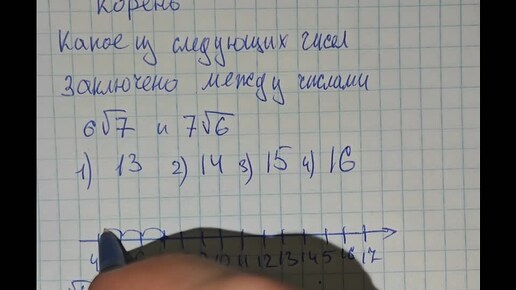 Корень
Какое из следующих чисел
заключено между числами
6√7 и 7√6
1) 13 2) 14 3) 15 4) 16
4 11 12 13 14 15 16 17